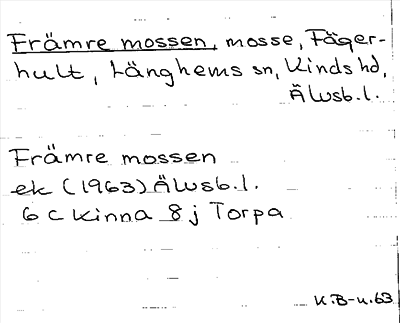 Främre mossen, mosse, Fäger-
hult, Länghems sn, Kinds hd,
Älvsb. l.
Främre mossen
ek (1963) Älvsb. l.
6 C Kinna 8 j Torpa
K.B-n. 63